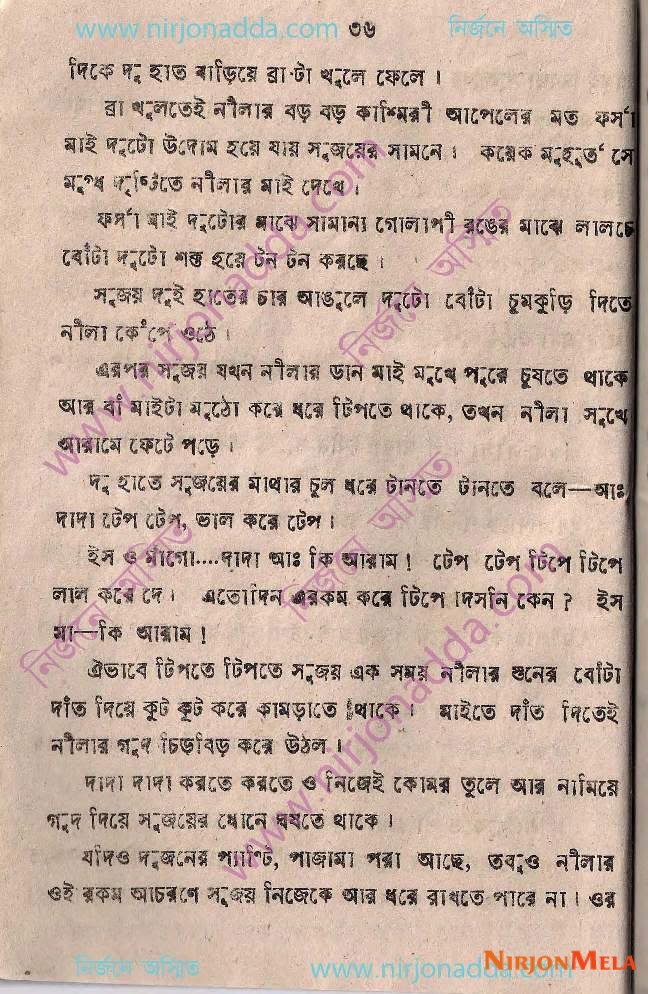 www.nirjonadda.com ৩৬ নির্জনে অস্মিত
দিকে দু হাত বাড়িয়ে ব্রা-টা খুলে ফেলে।
ব্রা খুলতেই নীলার বড় বড় কাশ্মিরী আপেলের মত ফর্সা
মাই দুটো উদোম হয়ে যায় সুজয়ের সামনে। কয়েক মুহূর্ত সে
মুগ্ধ দৃষ্টিতে নীলার মাই দেখে।
ফর্সা মাই দুটোর মাঝে সামান্য গোলাপী রঙের মাঝে লালচে
বোঁটা দুটো শক্ত হয়ে টন টন করছে।
সুজয় দুই হাতের চার আঙুলে দুটো বোঁটা চুমকুড়ি দিতে
নীলা কেঁপে ওঠে।
এরপর সুজয় যখন নীলার ডান মাই মুখে পুরে চুষতে থাকে
আর বাঁ মাইটা মুঠো করে ধরে টিপতে থাকে, তখন নীলা সুখে
আরামে ফেটে পড়ে।
দু হাতে সুজয়ের মাথার চুল ধরে টানতে টানতে বলে—আঃ
দাদা টেপ টেপ, ভাল করে টেপ।
ইস ও মাঁগো....দাদা আঃ কি আরাম! টেপ টেপ টিপে টিপে
লাল করে দে। এতোদিন এরকম করে টিপে দিসনি কেন? ইস
মা—কি আরাম!
ঐভাবে টিপতে টিপতে সুজয় এক সময় নীলার শুনের বোঁটা
দাঁত দিয়ে কুট কুট করে কামড়াতে থাকে। মাইতে দাঁত দিতেই
নীলার গুদ চিড়বিড় করে উঠল।
দাদা দাদা করতে করতে ও নিজেই কোমর তুলে আর নামিয়ে
গুদ দিয়ে সুজয়ের ধোনে ঘষতে থাকে।
যদিও দুজনের প্যাণ্টি, পাজামা পরা আছে, তবুও নীলার
ওই রকম আচরণে সুজয় নিজেকে আর ধরে রাখতে পারে না। ওর
নির্জনে অস্মিত www.nirjonadda.com NIRJONMELA
www.nirjonadda.com
নির্জনে অস্মিত
নির্জনে অস্মিত
নির্জনে অস্মিত
www.nirjonadda.com